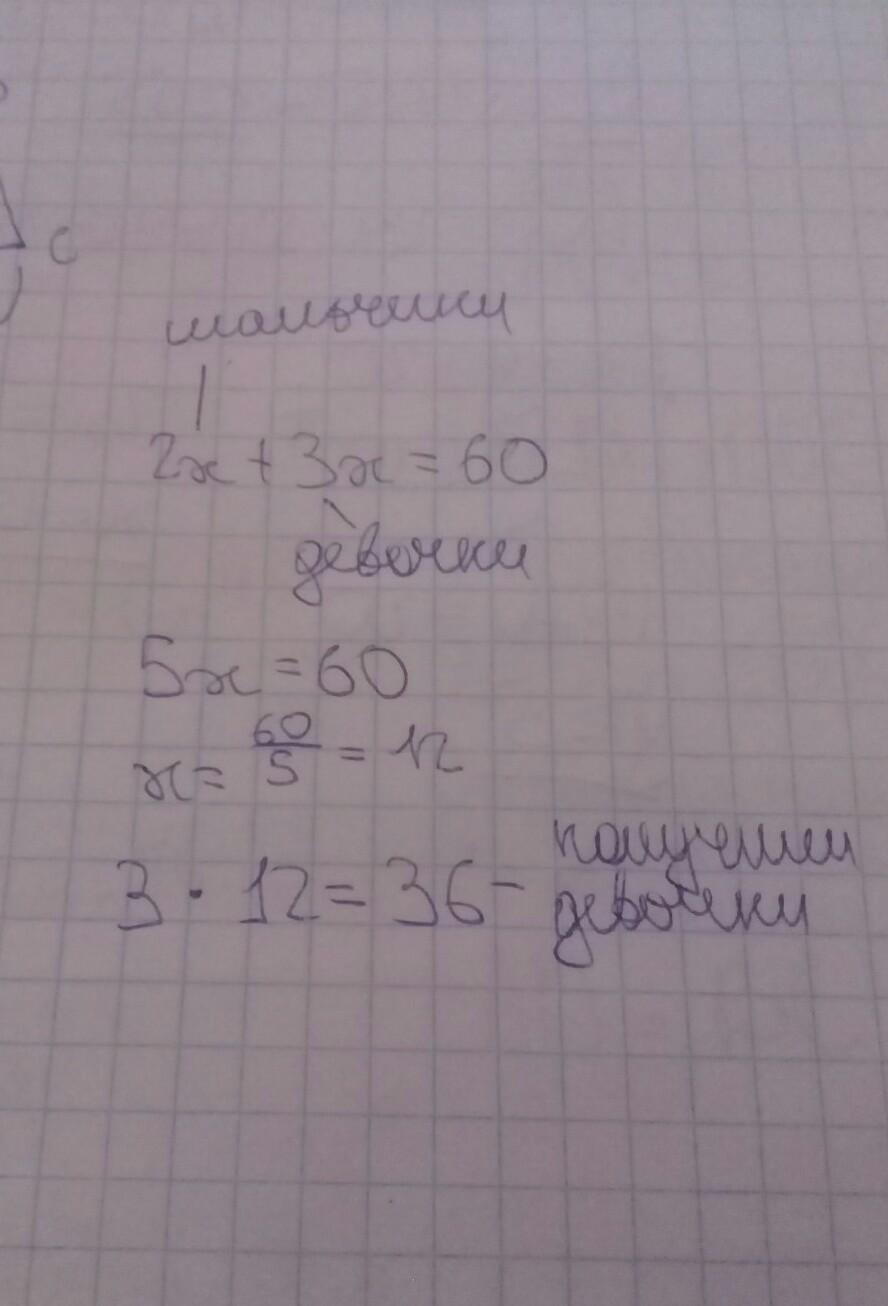 C
мальчики
2x + 3x = 60
девочки
5x = 60
x = 60/5 = 12
3 · 12 = 36 - получили
девочки